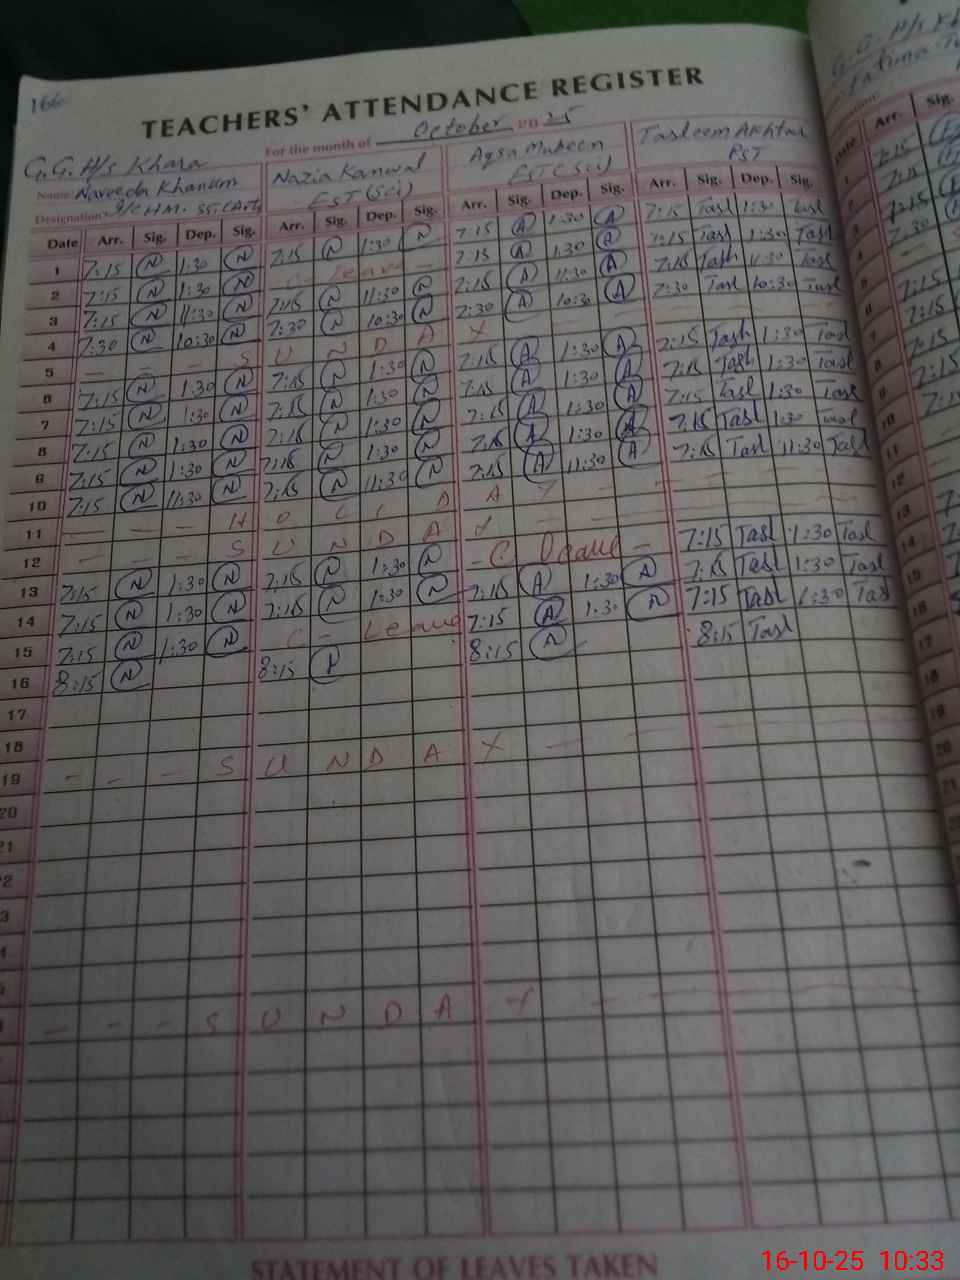 166
TEACHERS' ATTENDANCE REGISTER
For the month of October 2025
G.G.H/s Khara
Name Naveeda Khanum Nazia Kanwal Aqsa Mubeen Tasleem Akhtar
Designation I/C H.M. SST(Arts) EST (Sci) EST (Sci) PST
Date Arr. Sig. Dep. Sig. Arr. Sig. Dep. Sig. Arr. Sig. Dep. Sig. Arr. Sig. Dep. Sig.
1 7:15 N 1:30 N 7:15 N 1:30 N 7:15 A 1:30 A 7:15 Tasl 1:30 Tasl
2 7:15 N 1:30 N C- Leave - 7:15 A 1:30 A 7:15 Tasl 1:30 Tasl
3 7:15 N 11:30 N 7:15 N 11:30 N 7:15 A 11:30 A 7:15 Tasl 11:30 Tasl
4 7:30 N 10:30 N 7:30 N 10:30 N 7:30 A 10:30 A 7:30 Tasl 10:30 Tasl
5 - - - S U N D A Y - - -
6 7:15 N 1:30 N 7:15 N 1:30 N 7:15 A 1:30 A 7:15 Tasl 1:30 Tasl
7 7:15 N 1:30 N 7:15 N 1:30 N 7:15 A 1:30 A 7:15 Tasl 1:30 Tasl
8 7:15 N 1:30 N 7:15 N 1:30 N 7:15 A 1:30 A 7:15 Tasl 1:30 Tasl
9 7:15 N 1:30 N 7:15 N 1:30 N 7:15 A 1:30 A 7:15 Tasl 1:30
10 7:15 N 11:30 N 7:15 N 11:30 N 7:15 A 11:30 A 7:15 Tasl 11:30 Tasl
11 - - - H O L I D A Y - - -
12 - - - S U N D A Y - - -
13 7:15 N 1:30 N 7:15 N 1:30 N - C Leave - 7:15 Tasl 1:30 Tasl
14 7:15 N 1:30 N 7:15 N 1:30 N 7:15 A 1:30 A 7:15 Tasl 1:30 Tasl
15 7:15 N 1:30 N C- Leave 7:15 A 1:30 A 7:15 Tasl 1:30 Tasl
16 8:15 N 8:15 8:15 A 8:15 Tasl
17
18
19 - - - S U N D A Y -
20
- - - S U N D A Y - -
STATEMENT OF LEAVES TAKEN
16-10-25 10:33